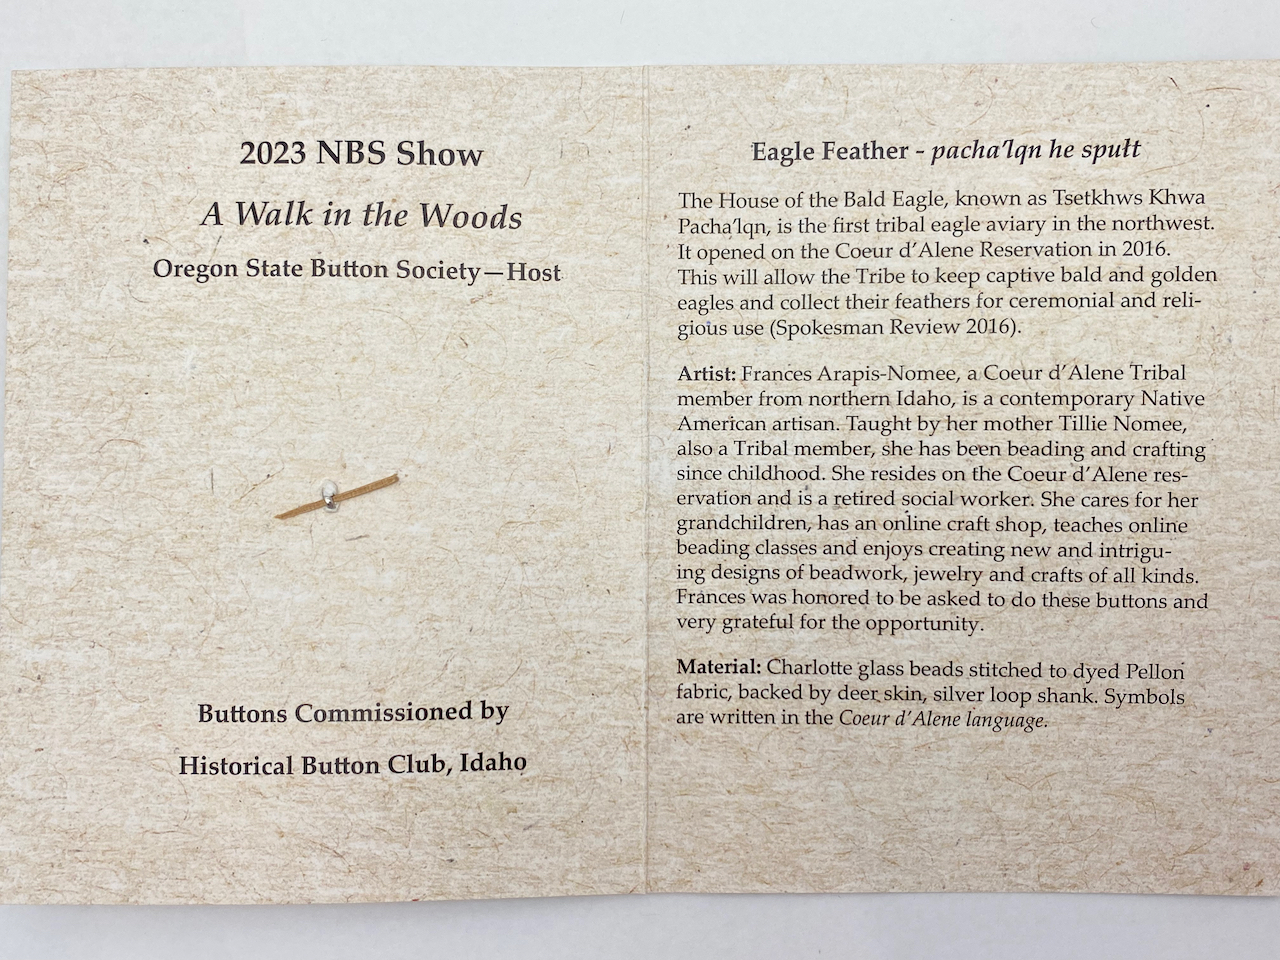 2023 NBS Show
A Walk in the Woods
Oregon State Button Society—Host
Buttons Commissioned by
Historical Button Club, Idaho
Eagle Feather - pacha'lqn he spułt
The House of the Bald Eagle, known as Tsetkhws Khwa
Pacha'lqn, is the first tribal eagle aviary in the northwest.
It opened on the Coeur d'Alene Reservation in 2016.
This will allow the Tribe to keep captive bald and golden
eagles and collect their feathers for ceremonial and reli-
gious use (Spokesman Review 2016).
Artist: Frances Arapis-Nomee, a Coeur d'Alene Tribal
member from northern Idaho, is a contemporary Native
American artisan. Taught by her mother Tillie Nomee,
also a Tribal member, she has been beading and crafting
since childhood. She resides on the Coeur d'Alene res-
ervation and is a retired social worker. She cares for her
grandchildren, has an online craft shop, teaches online
beading classes and enjoys creating new and intrigu-
ing designs of beadwork, jewelry and crafts of all kinds.
Frances was honored to be asked to do these buttons and
very grateful for the opportunity.
Material: Charlotte glass beads stitched to dyed Pellon
fabric, backed by deer skin, silver loop shank. Symbols
are written in the Coeur d'Alene language.